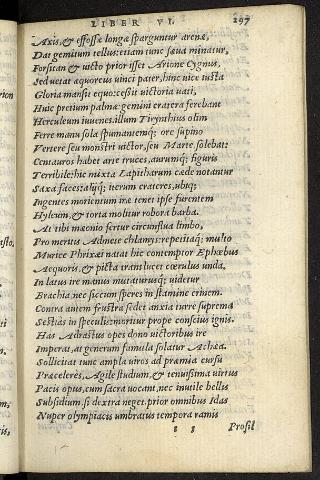 LIBER VI. 297
Axis, & effossæ longæ sparguntur arenæ,
Dat gemitum tellus: etiam tunc sæua minatur,
Forsitan & uicto prior isset Arione Cygnus,
Sed uetat æquoreus uinci pater, hinc uice iusta
Gloria mansit equo: cessit uictoria uati,
Huic pretium palmæ gemini cratera ferebant
Herculeum iuuenes. illum Tirynthius olim
Ferre manu sola spumantemq; ore supino
Vertere seu monstri uictor, seu Marte solebat:
Centauros habet arte truces, aurumq; figuris
Terribile: hic mixta Lapitharum cæde notantur
Saxa, faces: alijq; iterum crateres, ubiq;
Ingentes morientum iræ tenet ipse furentem
Hyleum, & torta molitur robora barba.
At tibi mæonio fertur circunflua limbo,
Pro meritis Admete chlamys: repetitaq; multo
Murice Phrixæi natat hic contemptor Ephœbus
Aequoris, & picta translucet cœrulus unda,
In latus ire manus mutaturusq; uidetur
Brachia, nec siccum speres in stamine crinem.
Contra autem frustra sedet anxia turre suprema
Sestias in speculis: moritur prope conscius ignis.
Has Adrastus opes dono uictoribus ire
Imperat, at generum famula solatur Achæa.
Sollicitat tunc ampla uiros ad præmia cursu
Præceleres, Agile studium, & tenuissima uirtus
Pacis opus, cum sacra uocant, nec inutile bellis
Subsidium, si dextra neget. prior omnibus Idas
Nuper olympiacis umbratus tempora ramis
Prosil